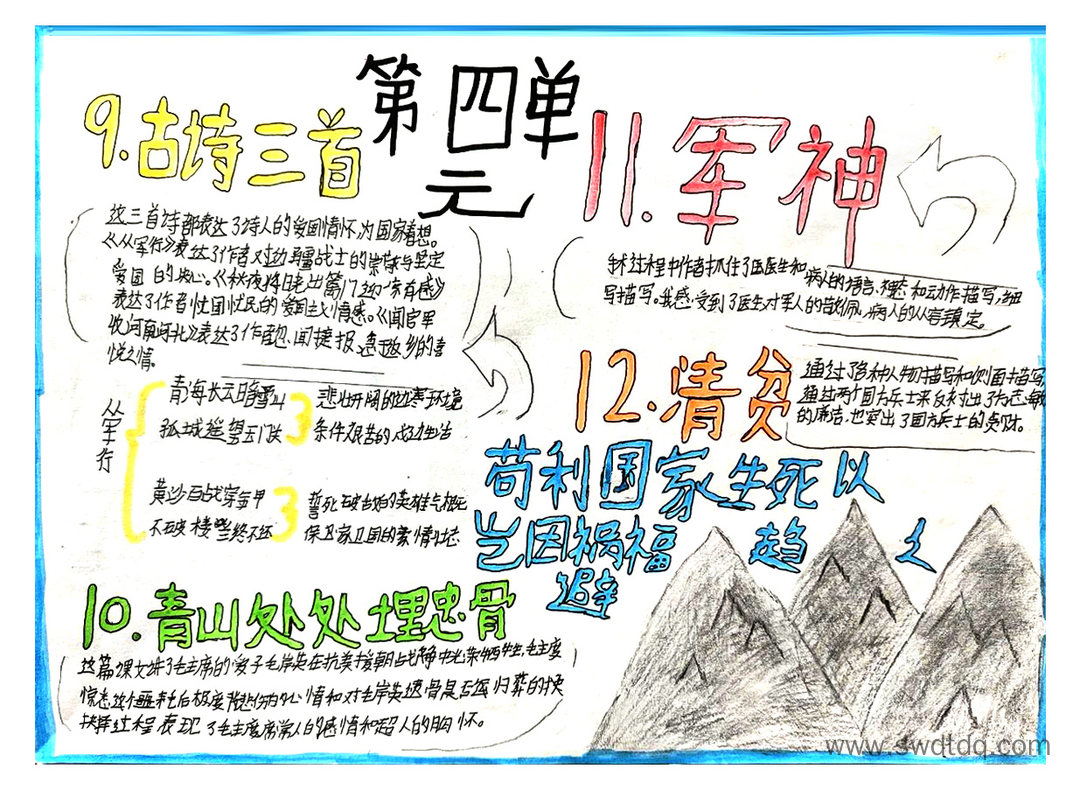 第四单
元
9.古诗三首
这三首诗都表达了诗人的爱国情怀,为国家着想。
《从军行》表达了作者对边疆战士的崇敬与坚定
爱国的决心。《秋夜将晓出篱门迎凉有感》
表达了作者忧国忧民的爱国主义情感。《闻官军
收河南河北》表达了作者闻捷报,急故乡的喜
悦之情。
从军行
青海长云暗雪山
孤城遥望玉门关
悲壮开阔的边寒环境
条件艰苦的戍边生活
黄沙百战穿金甲
不破楼兰终不还
誓死破敌的英雄气概
保卫家卫国的豪情壮志
10.青山处处埋忠骨
这篇课文讲了毛主席的爱子毛岸英在抗美援朝战争中光荣牺牲,毛主席
惊悉这个噩耗后极度心情和对毛岸英遗骨是否归葬的抉
择过程表现了毛主席常人的感情和超人的胸怀。
11.军神
过程中作者抓住了医生和病人的语言、神态和动作描写,细
写描写。我感受到了医生对军人的敬佩,病人的从容镇定。
12.清贫
通过了各种人物描写和侧面描写,
通过两个国方兵士来反衬出了方志敏
的廉洁,也突出了国方兵士的贪财。
苟利国家生死以
岂因祸福
避趋之
www.swdtdq.com